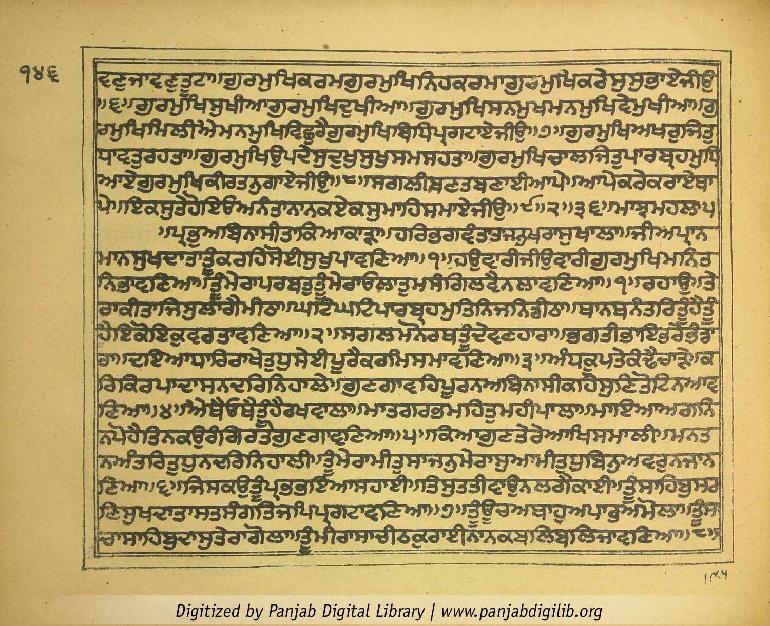 ੧੪੬
ਵਣੁਜਾਵਣੁਤੂਟਾ॥ਗੁਰਮੁਖਿਕਰਮਗੁਰਮੁਖਿਨਿਹਕਰਮਾਗੁਰਮੁਖਿਕਰੇਸੁਸੁਭਾਏਜੀਉ
॥੬॥ਗੁਰਮੁਖਿਸੁਖੀਆਗੁਰਮੁਖਿਦੁਖੀਆ॥ਗੁਰਮੁਖਿਸਨਮੁਖਮਨਮੁਖਿਵੇਮੁਖੀਆ॥ਗੁ
ਰਮੁਖਿਮਿਲੀਐਮਨਮੁਖਿਵਿਛੁਰੈਗੁਰਮੁਖਿਬਿਧਿਪ੍ਰਗਟਾਏਜੀਉ॥੭॥ਗੁਰਮੁਖਿਅਖਰੁਜਿਤੁ
ਧਾਵਤੁਰਹਤਾ॥ਗੁਰਮੁਖਿਉਪਦੇਸੁਦੁਖੁਸੁਖੁਸਮਸਹਤਾ॥ਗੁਰਮੁਖਿਚਾਲਜਿਤੁਪਾਰਬ੍ਰਹਮੁਧਿ
ਆਏਗੁਰਮੁਖਿਕੀਰਤਨੁਗਾਏਜੀਉ॥੮॥ਸਗਲੀਬਣਤਬਣਾਈਆਪੇ॥ਆਪੇਕਰੇਕਰਾਏਥਾ
ਪੇ॥ਇਕਸੁਤੇਹੋਇਓਅਨੰਤਾਨਾਨਕਏਕਸੁਮਾਹਿਸਮਾਏਜੀਉ॥੯॥੨॥੩੬॥ਮਾਝਮਹਲਾ੫
॥ਪ੍ਰਭੁਅਬਿਨਾਸੀਤਾਕਿਆਕਾੜਾ॥ਹਰਿਭਗਵੰਤਤਾਜਨੁਖਰਾਸੁਖਾਲਾ॥ਜੀਅਪ੍ਰਾਨ
ਮਾਨਸੁਖਦਾਤਾਤੂੰਕਰਹਿਸੋਈਸੁਖੁਪਾਵਣਿਆ॥੧॥ਹਉਵਾਰੀਜੀਉਵਾਰੀਗੁਰਮੁਖਿਮਨਿਤ
ਨਿਭਾਵਣਿਆ॥ਤੂੰਮੇਰਾਪਰਬਤੁਤੂੰਮੇਰਾਓਲਾਤੁਮਸੰਗਿਲਵੈਨਲਾਵਣਿਆ॥੧॥ਰਹਾਉ॥ਤੇ
ਰਾਕੀਤਾਜਿਸੁਲਾਗੈਮੀਠਾ॥ਘਟਿਘਟਿਪਾਰਬ੍ਰਹਮੁਤਿਨਿਜਨਿਡੀਠਾ॥ਥਾਨਥਨੰਤਰਿਤੂੰਹੈਤੂੰ
ਹੈਇਕੋਇਕੁਵਰਤਾਵਣਿਆ॥੨॥ਸਗਲਮਨੋਰਥਤੂੰਦੇਵਣਹਾਰਾ॥ਭਗਤੀਭਾਇਭਰੇਭੰਡਾ
ਰਾ॥ਦਇਆਧਾਰਿਰਾਖੇਤੁਧੁਸੇਈਪੂਰੈਕਰਮਿਸਮਾਵਣਿਆ॥੩॥ਅੰਧਕੂਪਤੇਕੰਢੈਚਾੜੇ॥ਕ
ਰਿਕਿਰਪਾਦਾਸਨਦਰਿਨਿਹਾਲੇ॥ਗੁਣਗਾਵਹਿਪੂਰਨਅਬਿਨਾਸੀਕਹਿਸੁਣਿਤੋਟਿਨਆਵ
ਣਿਆ॥੪॥ਐਥੈਓਥੈਤੂੰਹੈਰਖਵਾਲਾ॥ਮਾਤਗਰਭਮਹਿਤੁਮਹੀਪਾਲਾ॥ਮਾਇਆਅਗਨਿ
ਨਪੋਹੈਤਿਨਕਉਰੰਗਿਰਤੇਗੁਣਗਾਵਣਿਆ॥੫॥ਕਿਆਗੁਣਤੇਰੇਆਖਿਸਮਾਲੀ॥ਮਨਤ
ਨਅੰਤਰਿਤੁਧੁਨਦਰਿਨਿਹਾਲੀ॥ਤੂੰਮੇਰਾਮੀਤੁਸਾਜਨੁਮੇਰਾਸੁਆਮੀਤੁਧੁਬਿਨੁਅਵਰੁਨਜਾਨ
ਣਿਆ॥੬॥ਜਿਸਕਉਤੂੰਪ੍ਰਭਭਇਆਸਹਾਈ॥ਤਿਸੁਤਤੀਵਾਉਨਲਗੈਕਾਈ॥ਤੂੰਸਾਹਿਬੁਸਰ
ਣਿਸੁਖਦਾਤਾਸਤਸੰਗਤਿਜਪਿਪ੍ਰਗਟਾਵਣਿਆ॥੭॥ਤੂੰਊਚਅਥਾਹੁਅਪਾਰੁਅਮੋਲਾ॥ਤੂੰਸਾ
ਚਾਸਾਹਿਬੁਦਾਸੁਤੇਰਾਗੋਲਾ॥ਤੂੰਮੀਰਾਸਾਚੀਠਕੁਰਾਈਨਾਨਕਬਲਿਬਲਿਜਾਵਣਿਆ॥੮॥
Digitized by Panjab Digital Library | www.panjabdigilib.org